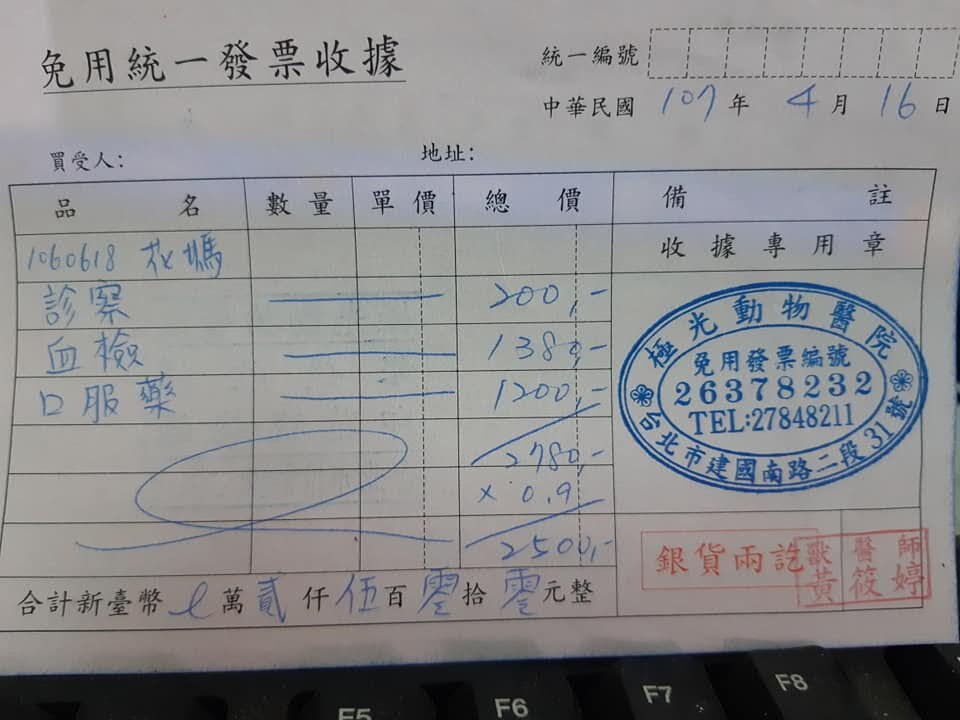 免用統一發票收據
統一編號
中華民國 107年 4月 16日
買受人: 地址:
品名 數量 單價 總價 備註
1060618 花媽 收據專用章
診察 200,-
血檢 1380,-
口服藥 1200,-
2780,-
× 0.9
2500,-
極光動物醫院
免用發票編號
26378232
TEL:27848211
台北市建國南路二段31號
銀貨兩訖
獸醫師
黃筱婷
合計新臺幣 萬貳仟伍百零拾零元整
F5 F6 F7 F8